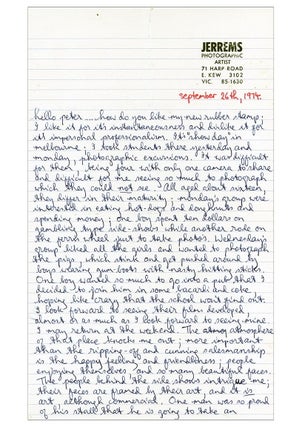 JERREMS
PHOTOGRAPHIC
ARTIST
71 HARP ROAD
E. KEW 3102
VIC. 85-1630
september 26th, 1974.
hello peter.... how do you like my new rubber stamp;
I like it for its instantaneousness and dislike it for
its impersonal professionalism. It's "show day" in
melbourne; I took students there yesterday and
monday; photographic excursions. It was difficult
for them, being four with only one camera to share
and difficult for me seeing so much to photograph
which they could not see. All aged about sixteen,
they differ in their maturity; monday's group were
interested in eating hot dogs and doughnuts and
spending money; one boy spent ten dollars on
gambling type side-shows while another rode on
the ferris wheel just to take photos. Wednesday's
group liked all the girls and wanted to photograph
the pigs, which stink and get pushed around by
boys wearing gum-boots with nasty hitting sticks.
One boy wanted so much to go into a pub that I
decided to join him in some bacardi and coke,
hoping like crazy that the school won't find out.
I look forward to seeing their film developed,
almost as much as I look forward to seeing mine.
I may return at the weekend. The atmosphere
of that place knocks me out; more important
than the ripping-off and cunning salesmanship
is the happy feeling and friendliness; people
enjoying themselves and so many beautiful faces.
The people behind the side shows intrigue me;
their faces are framed by their art, and it is
art, although commercial. One man was so proud
of his stall that he is going to take an